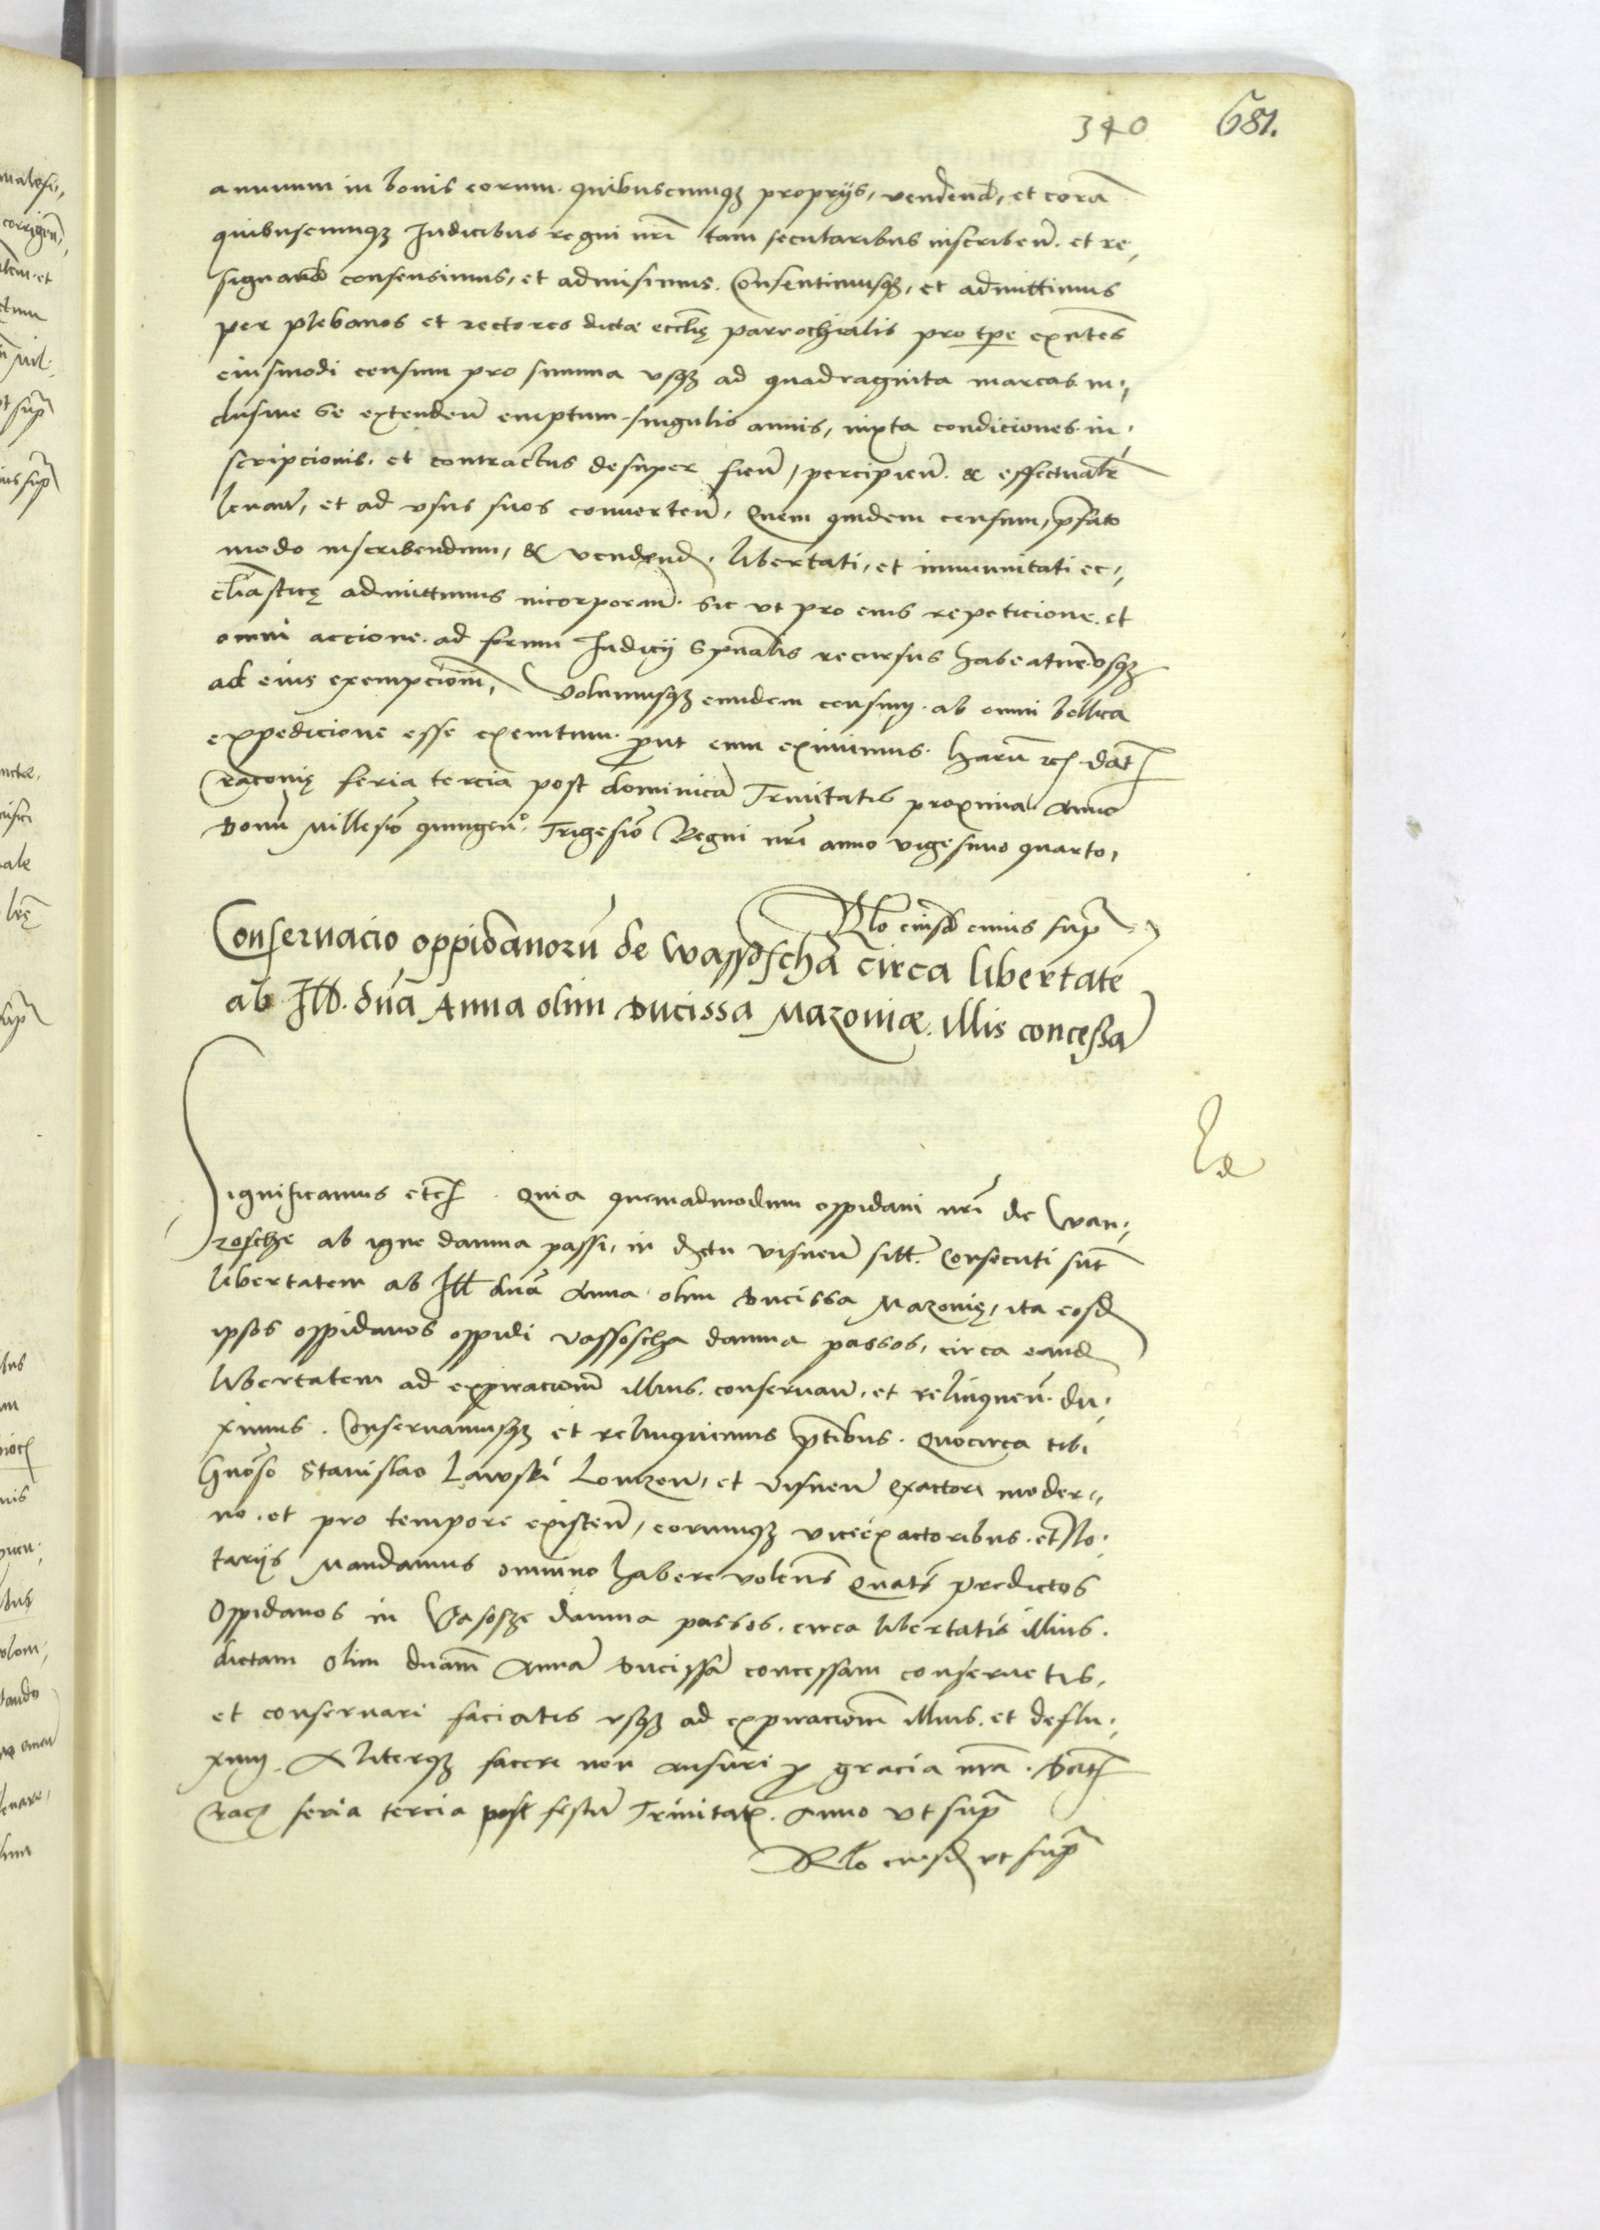 340 681.
annuum in bonis eorum quibuscumqz proprijs, vendend, et corã
quibuscumqz Iudicibus regni nrĩ tam secularibus inscribeñ. et re-
signand consensimus, et admisimus. Consentimusqz, et admittimus
per plebanos et rectores dictæ ecclię parrochialis pro tpe exñtes
eiusmodi censum pro summa vsqz ad quadraginta marcas in-
clusiue se extendeñ emptum singulis annis, iuxta condiciones in-
scripcionis. et contractus desuper fieñ, percipieñ. & effectualr
leuañ, et ad vsus suos conuerteñ, Quem quidem censum, pfato
modo inscribendum, & vendend. libertati, et immunitati ec-
cliasticę admittimus incorporañ. Sic vt pro eius repeticione. et
omni accione. ad forum Iudicij Spũalis recursus habeatur vsqz
ad eius exempcionẽ, Volumusqz eundem censum. ab omni bellica
expedicione esse exemtum. prout eum eximimus. harũ rc. dat
Cracouię feria tercia post dominicã Trinitatis proxima. Anno
Domi Millesio quingeno. Trigesio Regni nrĩ anno vigesimo quarto,
Rlo eiusd cuius supra
Conseruacio oppidanorũ de Wassoscha circa libertatẽ
ab Ill. dña Anna olim Ducissa Mazouiæ. illis concessã
Significamus etc. Quia quemadmodum oppidani nrĩ de Wan-
zosche ab igne damna passi, in dctu visneñ sitt. Consecuti sũt
libertatem ab Ill dña Anna olim Ducissa Mazouię, ita eosd
ipsos oppidanos oppidi vassoscha damna passos, circa eand
libertatem ad expiracionẽ illius. conseruañ, et relinqueñ. du-
ximus. Conseruamusqz et relinquimus pñtibus. Quocirca tibi
Gnõso Stanislao Lawski Lomzeñ, et visneñ exactori moder-
no. et pro tempore existeñ, eorumqz viceexactoribus. et No-
tarijs Mandamus omnino habere voleñs Quatẽs predictos
Oppidanos in Vasosze damna passos. circa libertatis illius.
dictam olim dnam Annã Ducissã concessam conseruetis,
et conseruari faciatis vsqz ad expiracionẽ illius. et deflu-
xum. Aliterqz facere non ausuri p gracia nrã. Dat
Crac feria tercia post festũ Trinitat. Anno vt supra
Rlo eiusd vt supra